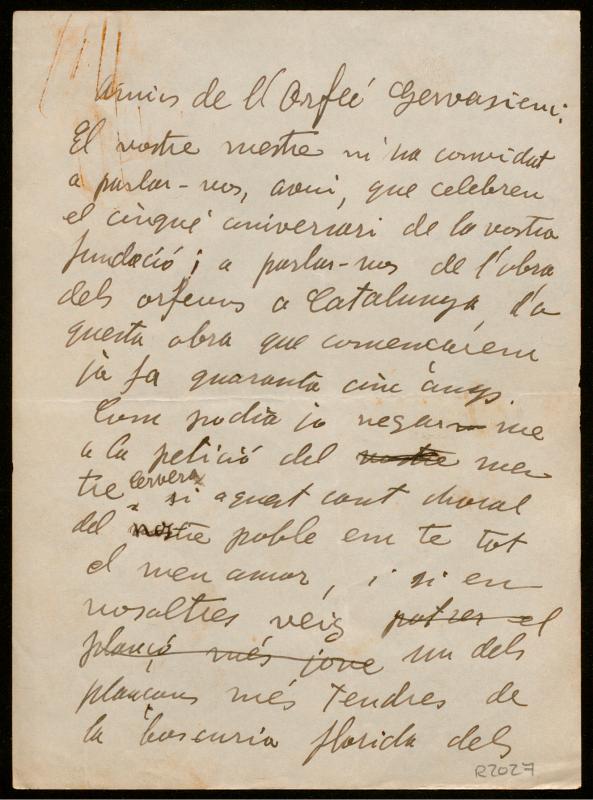 Amics de l'Orfeó Gervasienc:
El vostre mestre m'ha convidat
a parlar-vos, avui, que celebren
el cinquè aniversari de la vostra
fundació; a parlar-vos de l'obra
dels orfeons a Catalunya, d'a
questa obra que comencàrem
ja fa quaranta cinc anys.
Com podia jo negar-me
a la petició del vostre mes
tre Cervera
si aquest cant choral
del nostre poble em te tot
el meu amor, i si en
vosaltres veig potser el
plançó més jove un dels
plançons més tendres de
la boscuria florida dels
R2027